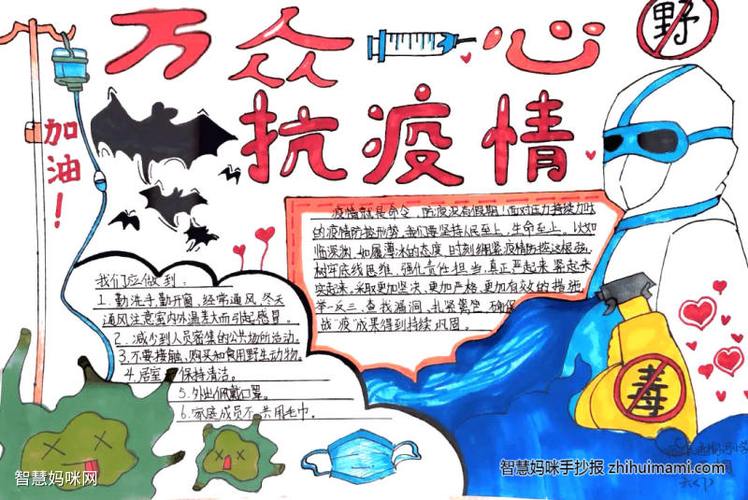 万众一心
野
抗疫情
加油!
疫情就是命令,防疫没有假期!面对压力持续加大
的疫情防控形势,我们要坚持人民至上,生命至上。以如
临深渊,如履薄冰的态度,时刻绷紧疫情防控这根弦,
树牢底线思维,强化责任担当,真正严起来紧起来
实起来。采取更加坚决,更加严格,更加有效的措施,
举一反三,查找漏洞,扎紧篱笆,确保
战"疫"成果得到持续巩固。
我们应做到:
1.勤洗手,勤开窗,经常通风,冬天
通风注意室内外温差大而引起感冒。
2.减少到人员密集的公共场所活动。
3.不要接触,购买和食用野生动物。
4.居室 保持清洁。
5.外出佩戴口罩。
6.家庭成员不共用毛巾。
毒
智慧妈咪网
智慧妈咪手抄报 zhihuimami.com